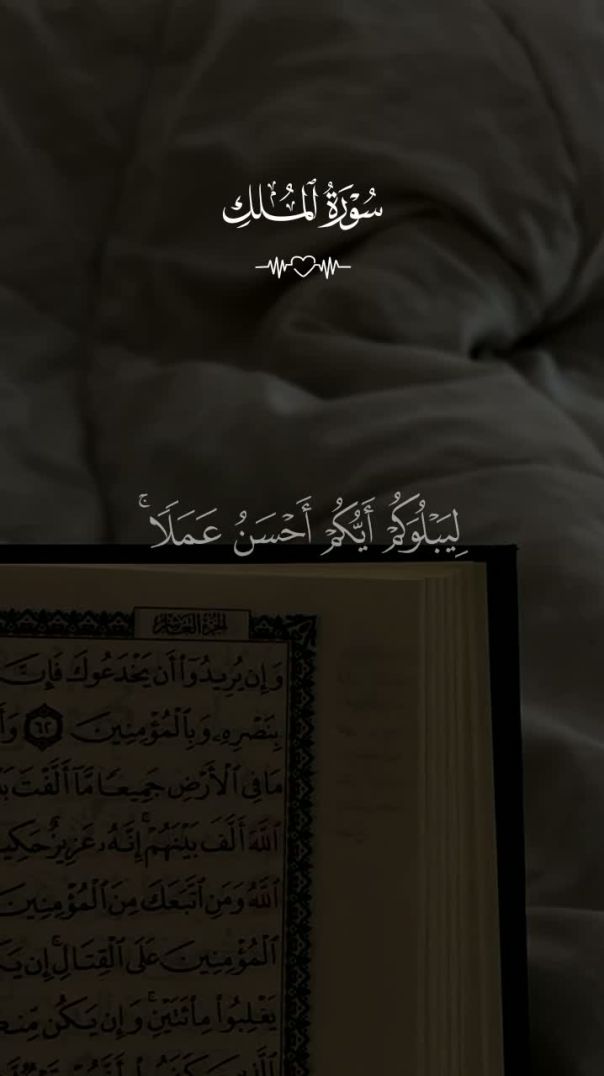 سُوْرَةُ ٱلمُلكِ
لِيَبْلُوَكُمْ أَيُّكُمْ أَحْسَنُ عَمَلًا ۚ
الجزء العاشر
وَإِن يُرِيدُوٓا۟ أَن يَخْدَعُوكَ فَإِنَّ
بِنَصْرِهِۦ وَبِٱلْمُؤْمِنِينَ ٦٢
مَا فِى ٱلْأَرْضِ جَمِيعًا مَّآ أَلَّفْتَ
ٱللَّهَ أَلَّفَ بَيْنَهُمْ ۚ إِنَّهُۥ عَزِيزٌ حَكِي
ٱللَّهُ وَمَنِ ٱتَّبَعَكَ مِنَ ٱلْمُؤْمِنِينَ
ٱلْمُؤْمِنِينَ عَلَى ٱلْقِتَالِ ۚ إِن
يَغْلِبُوا۟ مِا۟ئَتَيْنِ ۚ وَإِن يَكُن